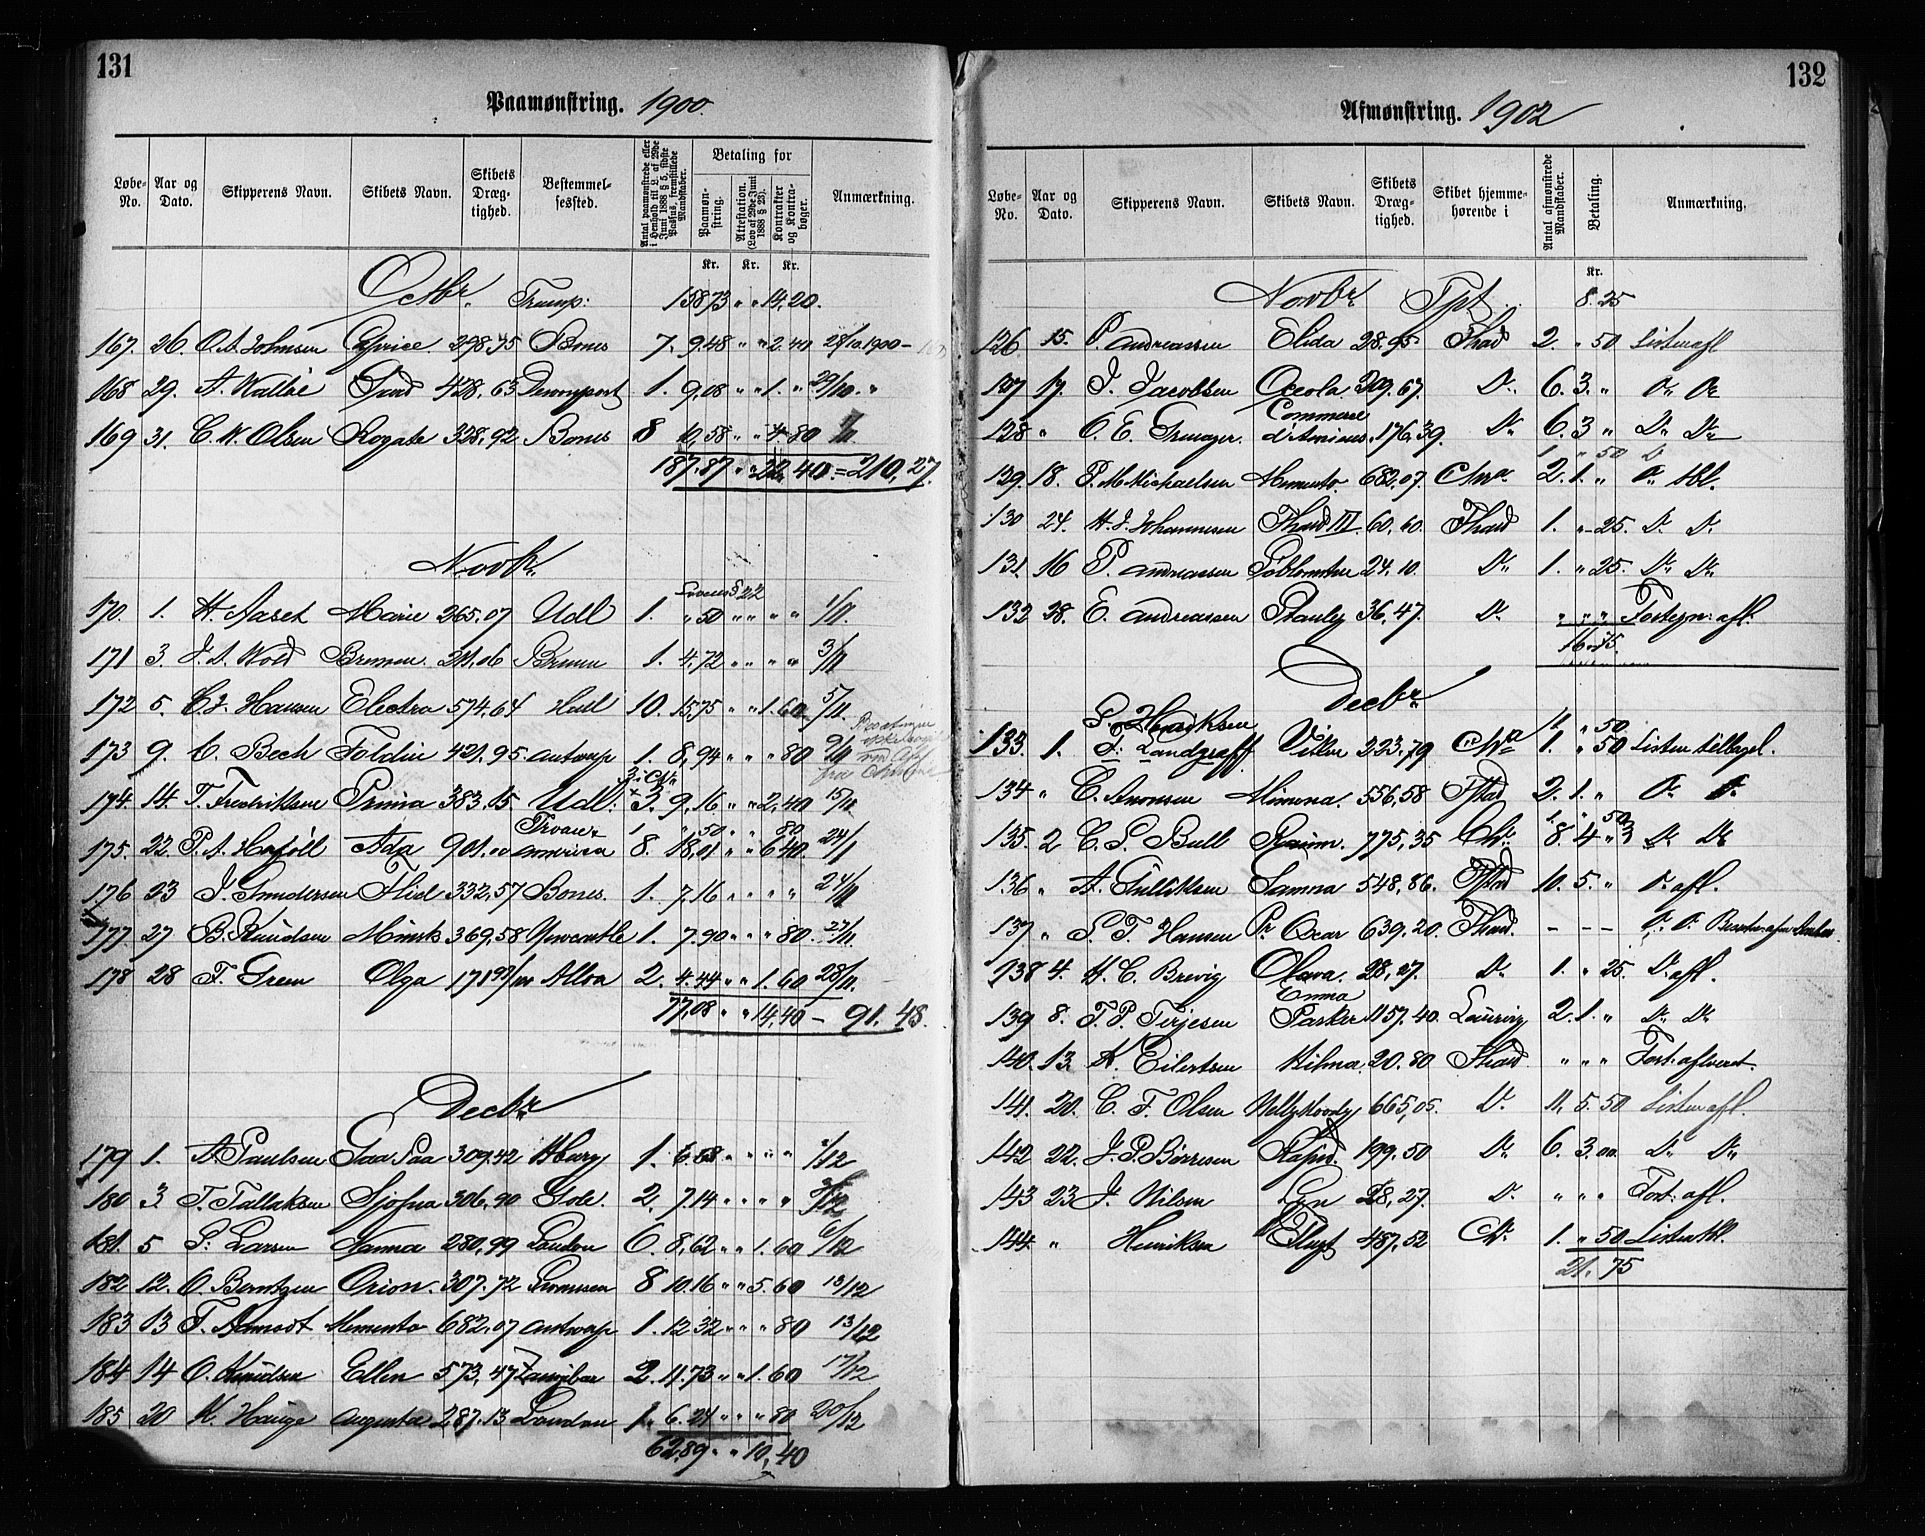 131
Paamønstring. 1900.
Løbe-No. Aar og Dato. Skipperens Navn. Skibets Navn. Skibets Dræg-tighed. Bestemmel-sessted. Antal paamønstrede eller i Henhold til L. af 29de Juni 1888 § 5, sidste Passus, fremstillede Mandskaber. Betaling for Paamøn-string. Attestation. (Lov af 29de Juni 1888 § 23). Kontrakter og Kontra-bøger. Anmærkning.
Kr. Kr. Kr.
Octbr. Transp: 158 73 " " 14,20.
167. 26. O. A. Johnsen Caprice. 298,75 Bones 7. 9,48 " " 2.40 28/10 1900 -
168 29. A. Walbö 428,63 Devonport 1. 9,08 " " 1. " 29/10. "
169 31. C. W. Olsen Rogate 328,92 Bones 8 10,58 " " 4 80
187.87 " " 22,40. = 210,27.
Novbr.
170. 1. H. Aaset Marie 265,07 Udl 1. " 50 " " " " 1/11.
171 3. J. A. Wold Bremen. 211,06 Bremen 1. 4,72 " " " " 3/11
172 5. C. J. Hansen Electra 574,64 Hull 10. 15,75 " " 1.60 5/11.
173 9. C. Bech Foldin 421,95 Antwerp 1. 8,94 " " " 80 9/11
174 14. T. Fredriksen Prima 383,15 Udl: 3. 9,16 " " 2,40 15/11
1 " 50 " " 80
175. 22. P. A. Ada 901.00 America 8. 18,01 " " 6 40. 24/11
176 23 J. Gundersen Flid 332,57 Bones. 1. 7.16 " " " " 24/11
177 27 B. Knudsen Mimk 369,58 Newcastle 1. 7.90 " " " 80. 27/11
178 28 F. Green Olga 171 Alloa 2. 4.44 " " 1.60 28/11.
77,08 " " 14,40 - 91.48.
Decbr
179 1. A. Paulsen Saa Saa 309,42 1. 6.58 " " " " 1/12
180 3 T. Tallaksen Sjofna 306,90 2. 7.14 " " " " 3/12
181. 5 S. Larsen Nanna 280,99 London 6. 8,62 " " 1.60 6/12
182 12. O. Berntzen Orion. 307.72 8 10.16 " " 5.60 13/12
183 13 T. Aamodt Memento 682,07 Antwerp 1. 12 32 " " " 80 13/12
184 14 O. Knudsen Ellen 573,47 Zanzibar 2. 11.73 " " 1.60 17/12
185 20 K. Hauge Augusta 287.13 London 1. 6.24 " " " 80 20/12
62.89 " " 19,40
132
Afmønstring. 1902
Løbe-No. Aar og Dato. Skipperens Navn. Skibets Navn. Skibets Dræg-tighed. Skibet hjemme-hørende i Antal afmønstrede Mandskaber. Betaling. Anmærkning.
Kr.
Novbr Tpt. 8.25
126 15. P. Andreassen Elida 28.95 Fhad 2. " 50 Listen afl
127 17. J. Jacobsen Oceola 309.67. Do 6. 3. " Do Do
Commerse
128 " O. E. d'Amiens. 176,39. Do 6. 3 " Do Do
1 " 50 D
129. 18. P. M. Michaelsen Memento. 682,07. Chra 2. 1. " Do tbl.
130 24. H. J. Johannesen Fhald III. 60,60. Fhald 1. " 25. Do Do
131. 16 P. Andreassen 24,10. Do 1. " 25. Do Do
132 28. E. Andreassen Stanley 36,47. Do " " " Fortegn: afl.
16.75.
Decbr
S. Henriksen 1 " 50
133. 1. F. Landgraff Viking 223,79 Chra 1. " 50 Listen tilbagel.
134 " C. Aronsen Mimona. 556,58 Fstad 2. 1. " Do Do
1 " 50
135. 2 C. S. Bull 775,35 Chr. 8. 4 " Do Do
136 " A. Gulliksen Sanna 548,86. Fstad 10. 5. " Do afl.
137 " S. T. Hansen Pr Oscar 639.20. Fhald. - - - Do Do
138 4. H. C. Brevig Olava. 28,27. Do 1. " 25. Do afl.
Emma
139 8. T. P. Terjesen Parker 1157.40. Laurvig 2. 1. " Do Do
140. 13. K. Eilertsen Hilma. 20.80 Fhald " " " Fort: afleveret.
141. 20. C. F. Olsen Nelly Moody 665,05. Do 11. 5.50 Listen afl.
142 22. J. P. Børresen 199.50 Do 6. 3.00. Do Do
143 23 J. Nilsen Lyn 28,27. Do " " " Fort: afl.
144. " Henriksen Flugt 487.52 Chr. 1. " 50 Listen tbl.
21.75